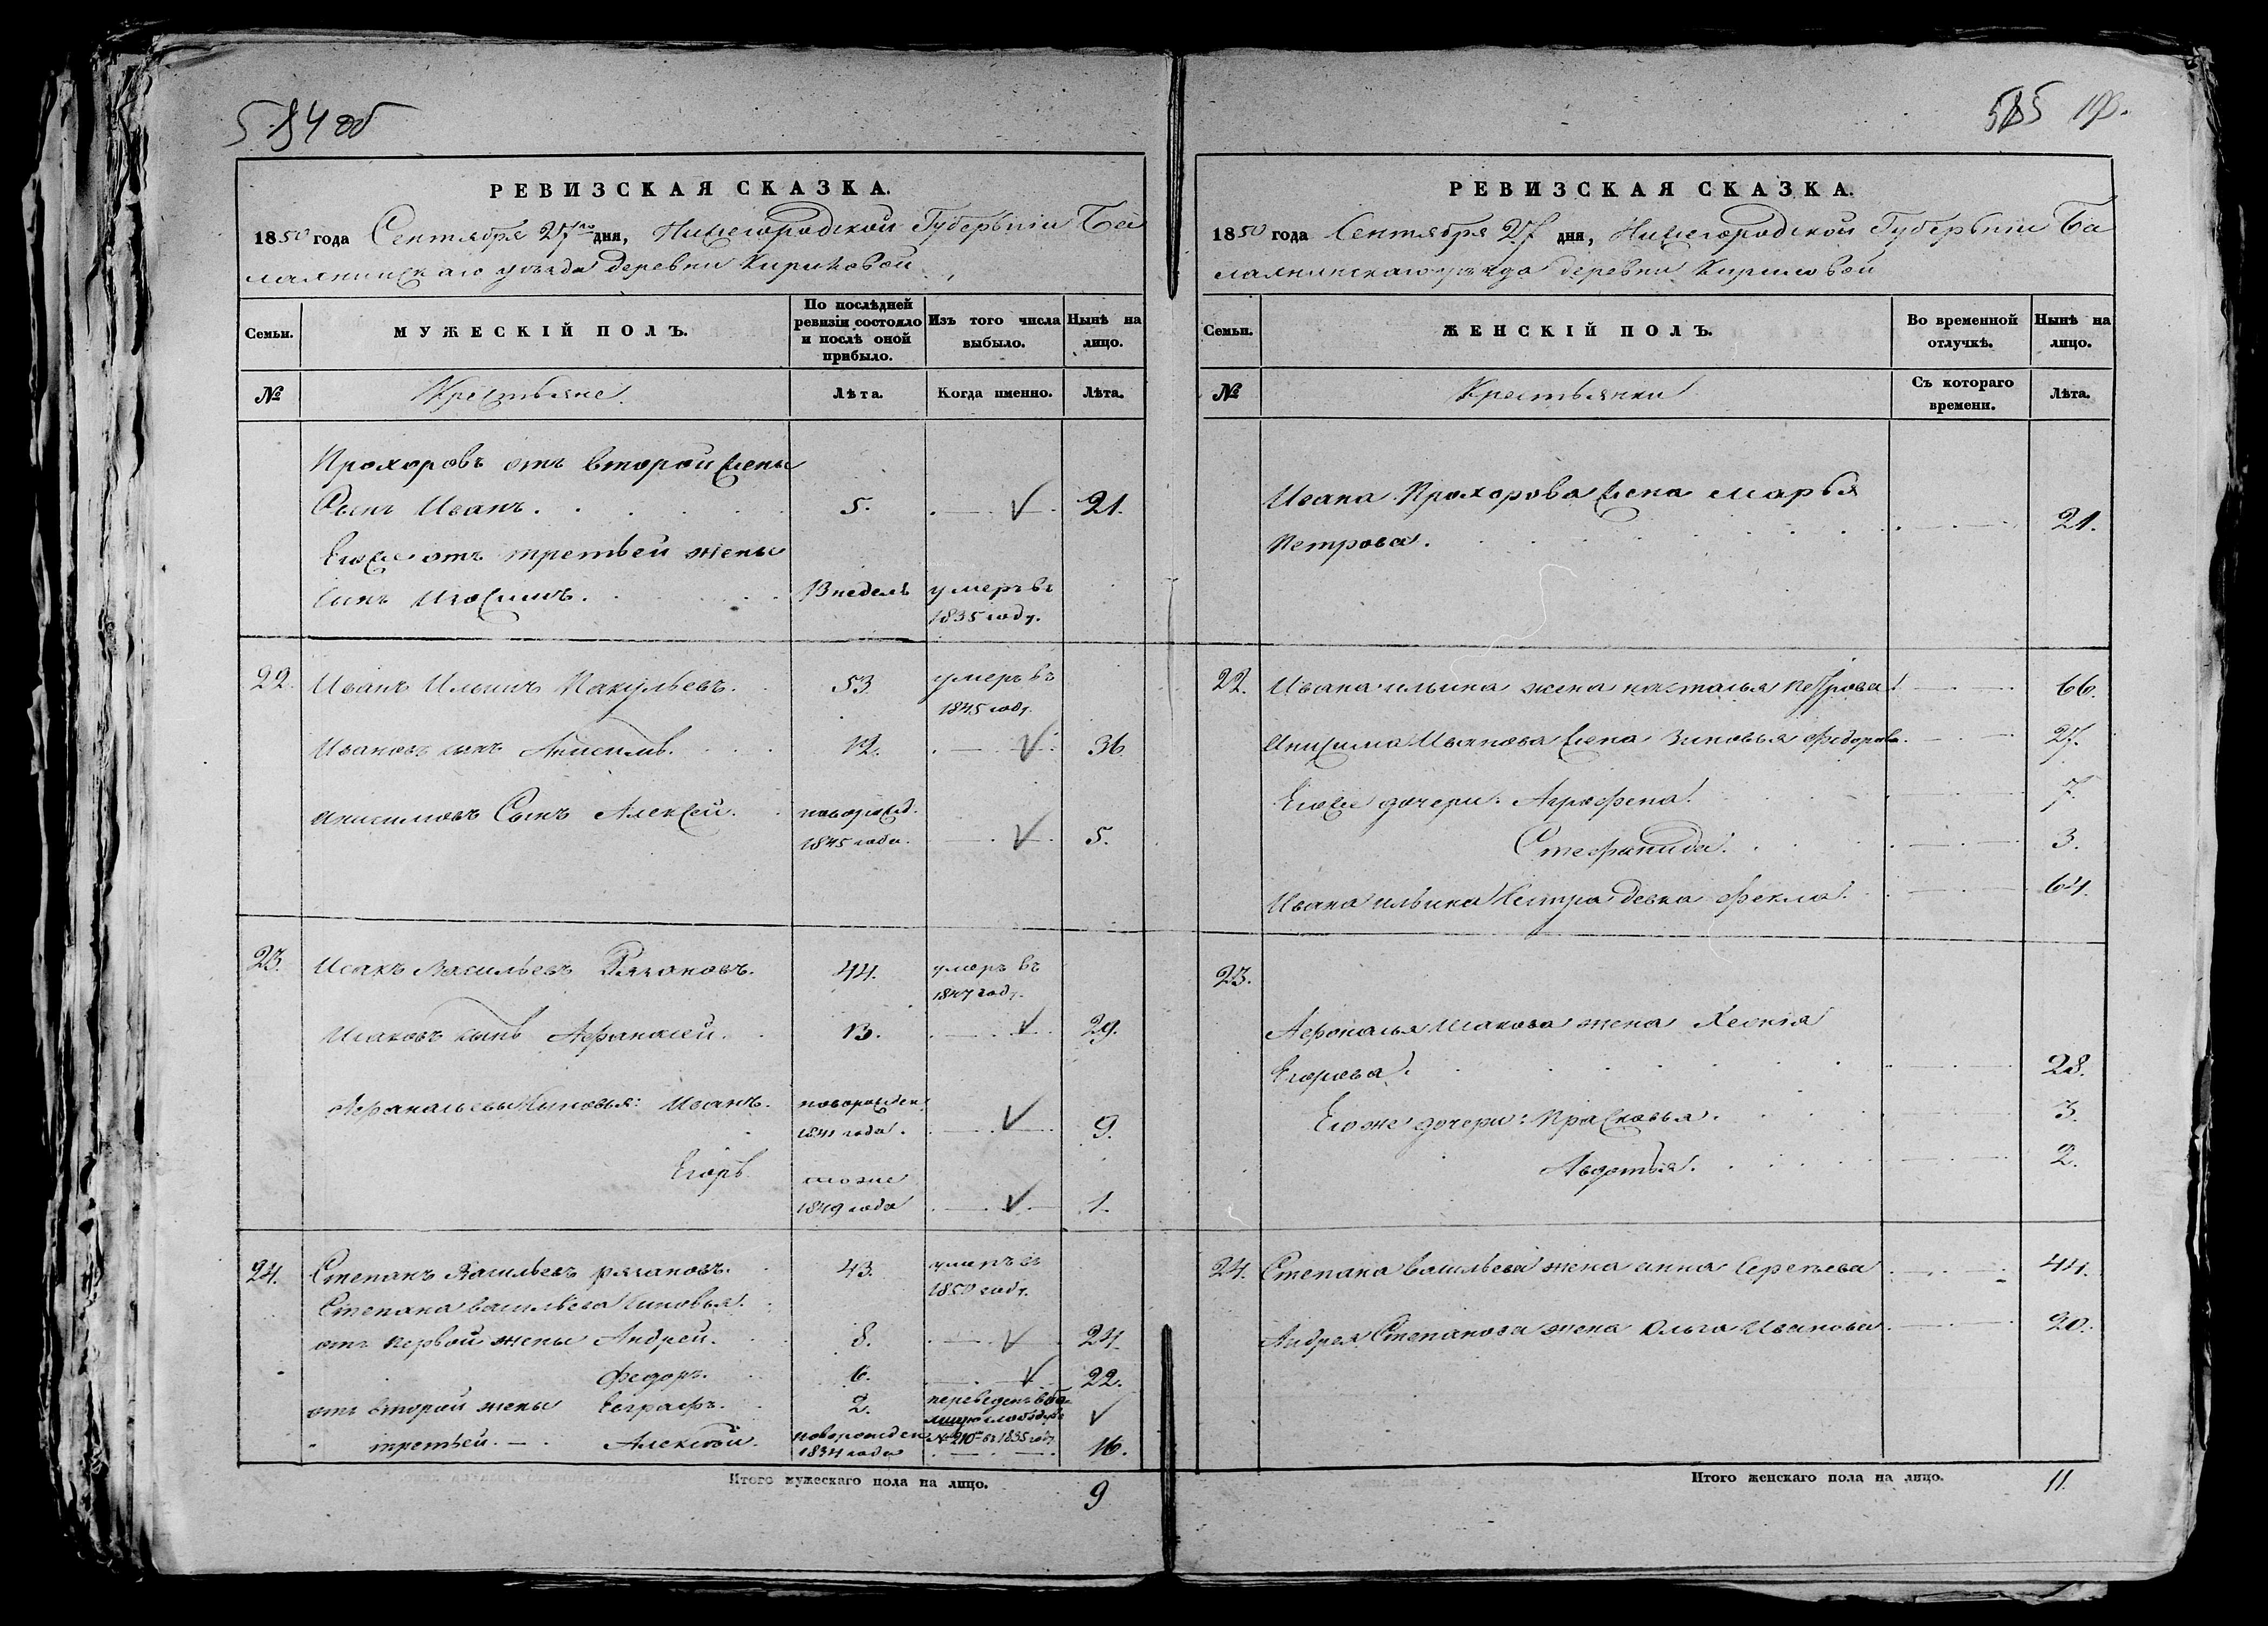 584 об
РЕВИЗСКАЯ СКАЗКА.
1850 года Сентября 27го дня, Нижегородской Губернiи Ба
лахнинскаго уезда деревни Кириловой
Семьи.
МУЖЕСКІЙ ПОЛЪ.
По послѣдней
ревизіи состояло
и послѣ оной
прибыло.
Изъ того числа
выбыло.
Нынѣ на
лицо.
№
Крестьяне.
Лѣта.
Когда именно.
Лѣта.
Прохоровъ отъ второй жены
Сынъ Иванъ. 5. 21.
Егоже отъ третьей жены
сынъ 13 недель умеръ въ
1835 году.
22. Иванъ Ильинъ 53. умеръ въ
1845 году.
Ивановъ сынъ Анисимъ. 19. 36.
Анисимовъ Сынъ Алексей. новорожд.
1845 года. 5.
23. Исакъ Васильевъ Рязановъ. 44. умеръ въ
1847 году.
Исаковъ сынъ Афанасей. 13. 29.
Афанасьевы Сыновья: Иванъ. новорожден.
1841 года. 9.
Егоръ тоже
1849 года 1.
24. Степанъ Васильевъ рязановъ. 43. умеръ въ
1850 году.
Степана васильева сыновья.
отъ первой жены Андрей. 8. 24.
Федоръ. 6. 22.
отъ второй жены Евграфъ. 2. переведенъ в
№ 210 въ 1835 году
третьей. Алексей. новорожден
1834 года 16.
Итого мужескаго пола на лицо.
9
585
РЕВИЗСКАЯ СКАЗКА.
1850 года Сентября 27 дня, Нижегородской Губернiи Ба
лахнинскаго уезда деревни Кириловой
Семьи.
ЖЕНСКІЙ ПОЛЪ.
Во временной
отлучкѣ.
Нынѣ на
лицо.
№
Крестьянки
Съ котораго
времени.
Лѣта.
Ивана Прохорова жена Марья
Петрова. 21.
22. Ивана ильина жена наталья петрова 66.
Анисима Иванова жена Зиновья Федорова. 27.
Егоже дочери: Аграфена. 7.
Стефанида. 3.
Ивана ильина Сестра девка Фекла. 64.
23.
Афонасья Исакова жена
Егорова. 28.
Егоже дочери: Прасковья. 3.
Авдотья. 2.
24. Степана васильева жена анна Сергеева 44.
Андрея Степанова жена Ольга Иванова. 20.
Итого женскаго пола на лицо.
11.